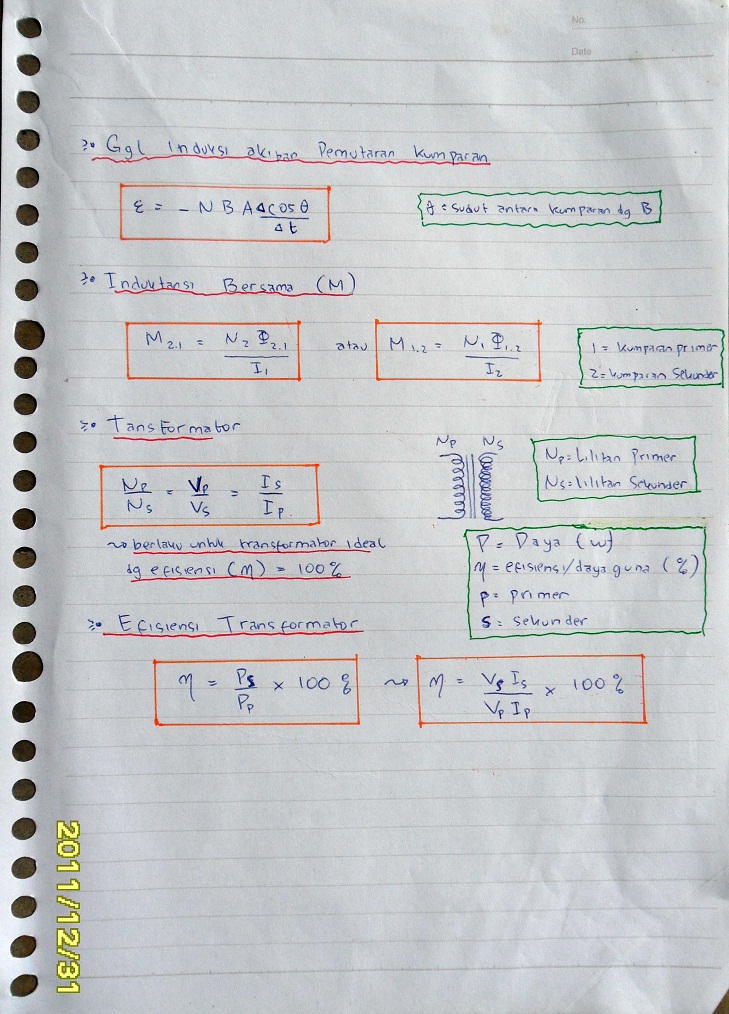 No.
Date
Ggl Induksi akiban Pemutaran Kumparan
ε = - N B A Δcosθ / Δt
θ = sudut antara kumparan dg B
Induktansi Bersama (M)
M2.1 = N2 Φ2.1 / I1 atau M1.2 = N1 Φ1.2 / I2
1 = kumparan primer
2 = kumparan Sekunder
Tansformator
NP NS
NP/NS = VP/VS = IS/IP
NP = Lilitan Primer
NS = Lilitan Sekunder
~> berlaku untuk transformator ideal
dg efisiensi (η) = 100%
P = Daya (w)
η = efisiensi/daya guna (%)
p = primer
s = sekunder
Efisiensi Transformator
η = Ps/Pp × 100 % ~> η = Vs Is / Vp Ip × 100 %
2011/12/31